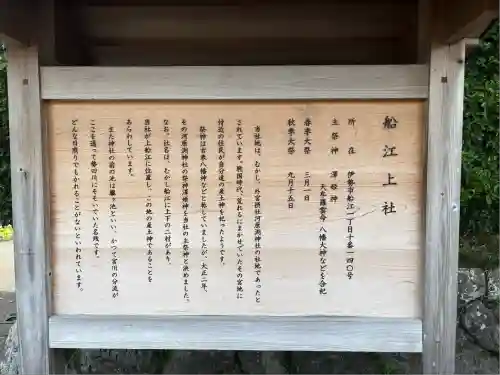 船江上社
所在 伊勢市船江一丁目十番一四〇号
主祭神 澤姫神
天牟羅雲命・八幡大神などを合祀
春季大祭 三月一日
秋季大祭 九月十五日
当社地は、むかし、外宮摂社河原淵神社の社地であったと
されています。戦国時代、荒れるにまかせていたその宮地に
付近の住民が自分達の産土神を祀ったようです。
祭神は古来八幡神などと称していましたが、大正二年、
その河原淵神社の祭神澤姫神を当社の主祭神と決めました。
なお、社名は、むかし船江に上下の二村があり、
当社が上船江に位置し、この地の産土神であることを
あらわしています。
また神社の前の池は籬ヶ池といい、かつて宮川の分流が
ここを通って勢田川にそそいでいた名残です。
どんな日照りでもかれることがないといわれています。